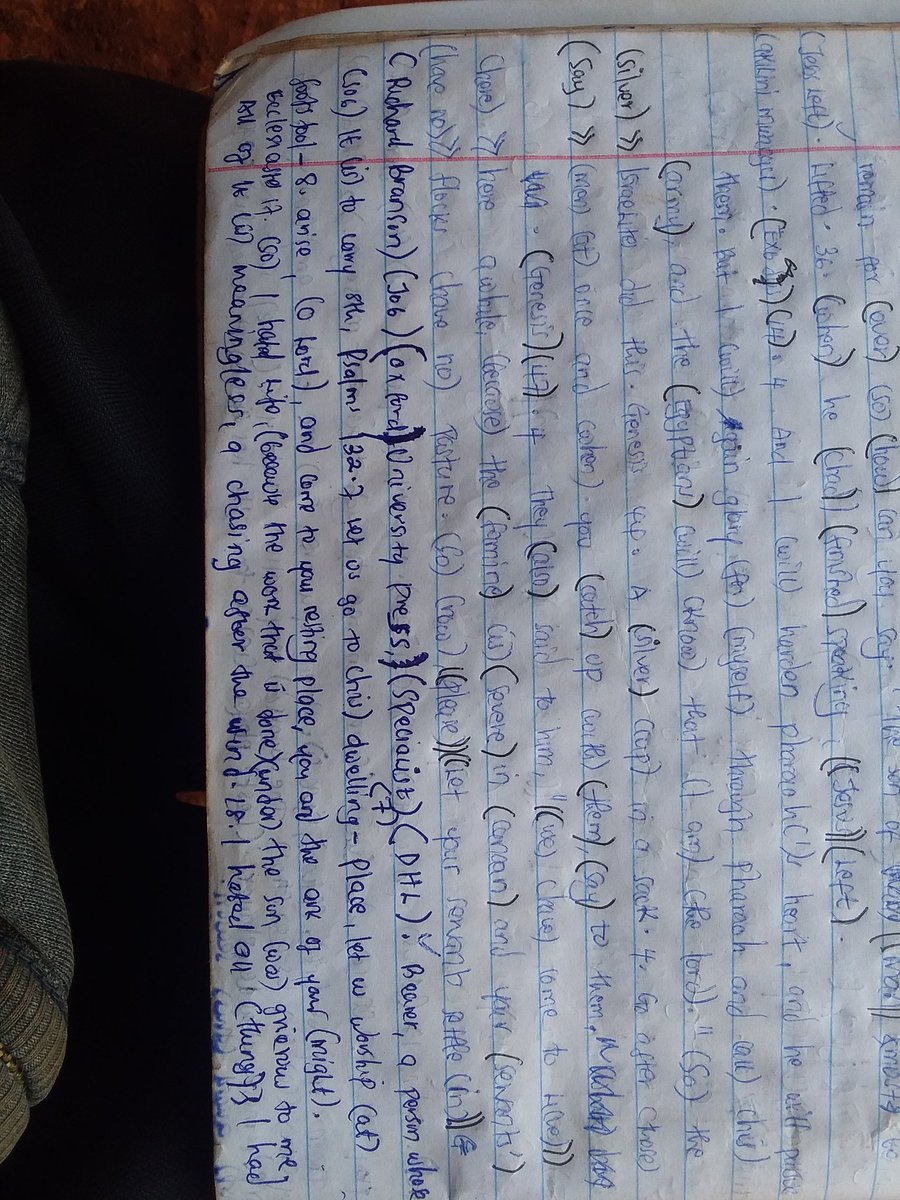 remain for (ever) (so) (how) can you say, 'The son of (Man)) (must) be
(Jesus left). Lifted. 36. (when) he (had) (finished) speaking, ((Jesus)) (left).
(akilini mwangu). (Exodus) (14). 4 And I (will) harden pharaoh('s heart, and he will pursue
them. But I (will) gain glory (for) (myself) through pharaoh and (all) (his)
(army), and the (Egyptians) (will) (know) that (I am) (the lord)." (So) the
(silver) >> Israelite did this. Genesis 44. A (silver) (cup) in a sack. 4. Go after those
(say) >> (men (at) once and (when) you (catch) up with) (them), (say) to them,
(Genesis) (47). 4 They (also) said to him, "(we) (have) come to live))
(here) >> here awhile, (because) the (famine) (is) (severe) in (canaan) and your (servants')
(have no) >> flocks (have no) pasture. (So) (now), ((please)) (let your servants settle (in))
(Richard Branson) (Job) (Oxford) University Press,} (specialist) (7) (DHL). ✓ Bearer, a person whose
(job) it (is) to carry sth, Psalms 132.7 let us go to (his) dwelling-place, let us worship (at)
footstool - 8. arise, (O Lord), and come to your resting place, you and the ark of your (might).
ecclesiaste it. (so) I hated life, (because the work that is done) (under) the sun (was) grievous to me,
All of it (is) meaningless, a chasing after the wind. 18. I hated all (things)} I had